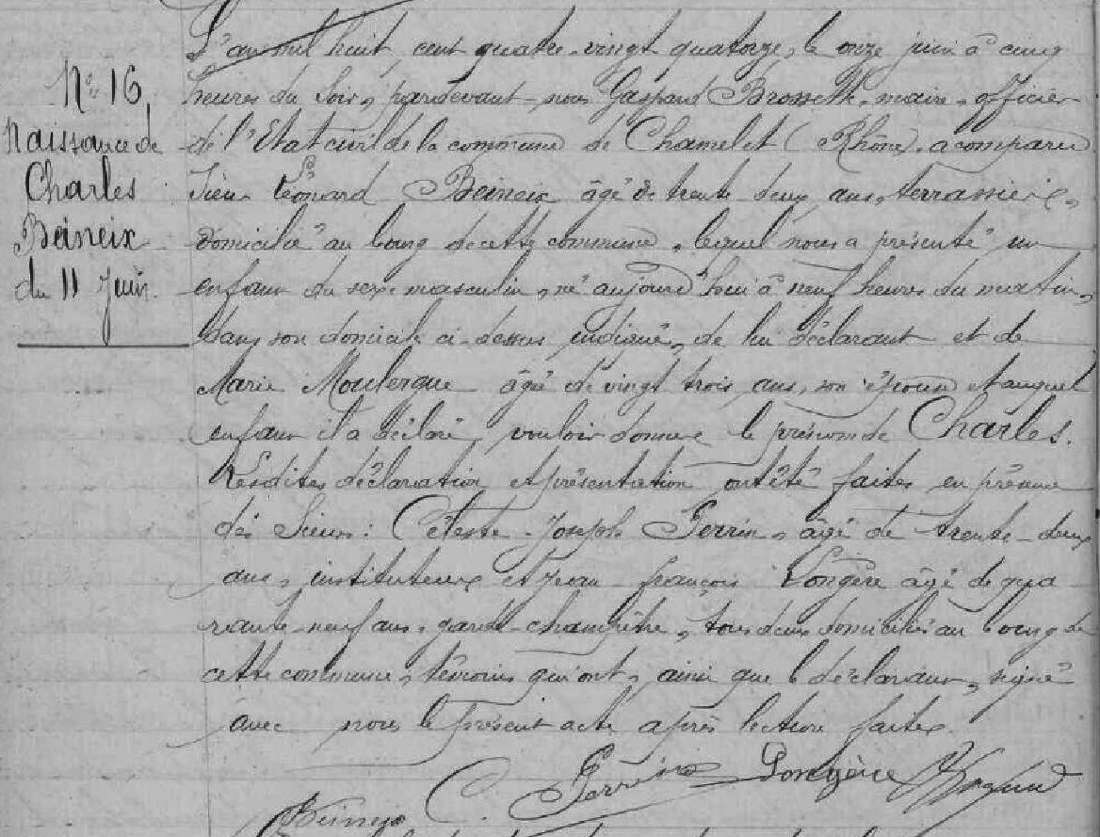 N° 16,
Naissance de
Charles
Beineix
du 11 Juin.
L'an mil huit cent quatre-vingt quatorze, le onze juin à cinq
heures du Soir, pardevant nous Gaspard Brossette, maire, officier
de l'Etat civil de la commune de Chamelet (Rhône), a comparu
Sieur Léonard Beineix âgé de trente deux ans, terrassier,
domicilié au bourg de cette commune, lequel nous a présenté un
enfant du sexe masculin, né aujourd'hui à neuf heures du matin,
dans son domicile ci-dessus indiqué, de lui déclarant et de
Marie Moulergue âgée de vingt trois ans, son épouse et auquel
enfant il a déclaré, vouloir donner le prénom de Charles.
Lesdites déclaration et présentation ont été faites en présence
des Sieurs: Céleste-Joseph Perrin, âgé de trente-deux
ans, instituteur et Jean François Longère âgé de qua
rante-neuf ans, garde-champêtre, tous deux domiciliés au bourg de
cette commune, témoins qui ont, ainsi que le déclarant, signé
avec nous le présent acte après lecture faite.
Perrin Longère
Beineix C.